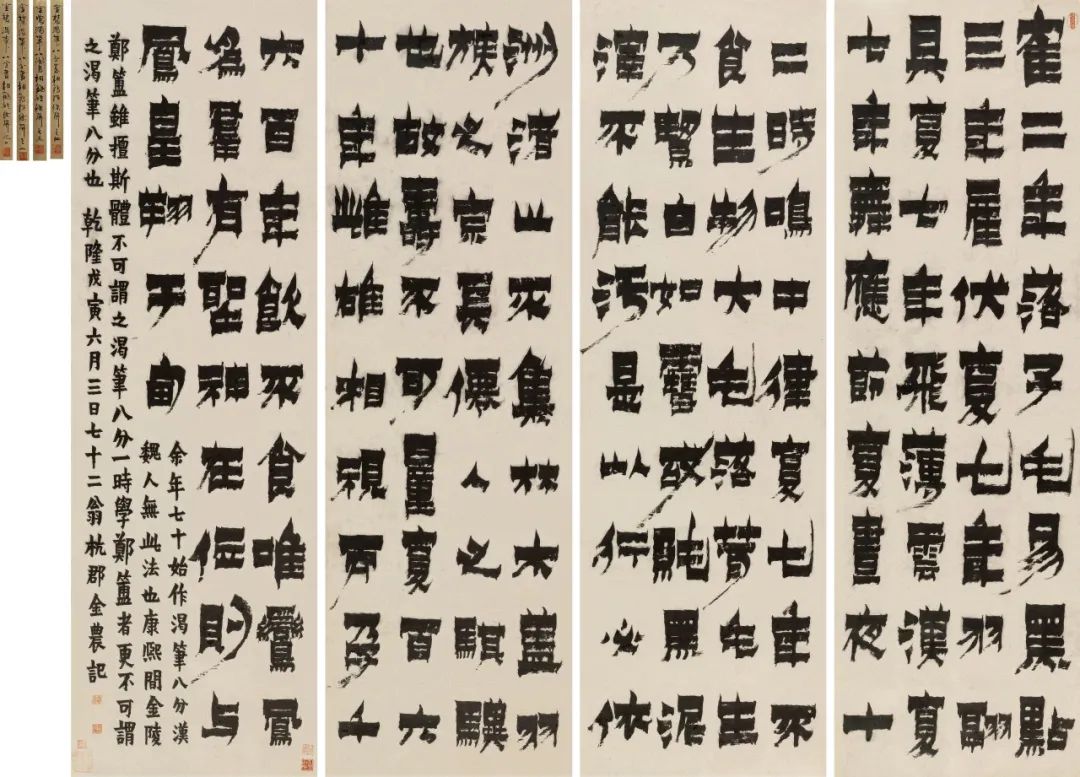 隺二年落子毛易黑點
三年雇伏复七年羽翮
具复七年飛薄雲漢复
七年舞應節复晝夜十
二時鳴中律复七年不
食生物大毛落茸毛生
乃絜白如雪故黗黑泥
漢不能污是以行必依
洲渚山不集林木蓋羽
族之宗真僊人之騏驥
也故壽不可量复百六
十年雌雄相視而孕千
六百年飲不食唯鸞鳳
為羣有聖神在位則与
鳳皇翔于甸
余年七十始作渴筆八分漢
魏人無此法也康熙間金陵
鄭簠雖擅斯體不可謂之渴筆八分一時學鄭簠者更不可謂
之渴筆八分也 乾隆戊寅六月三日七十二翁杭郡金農記